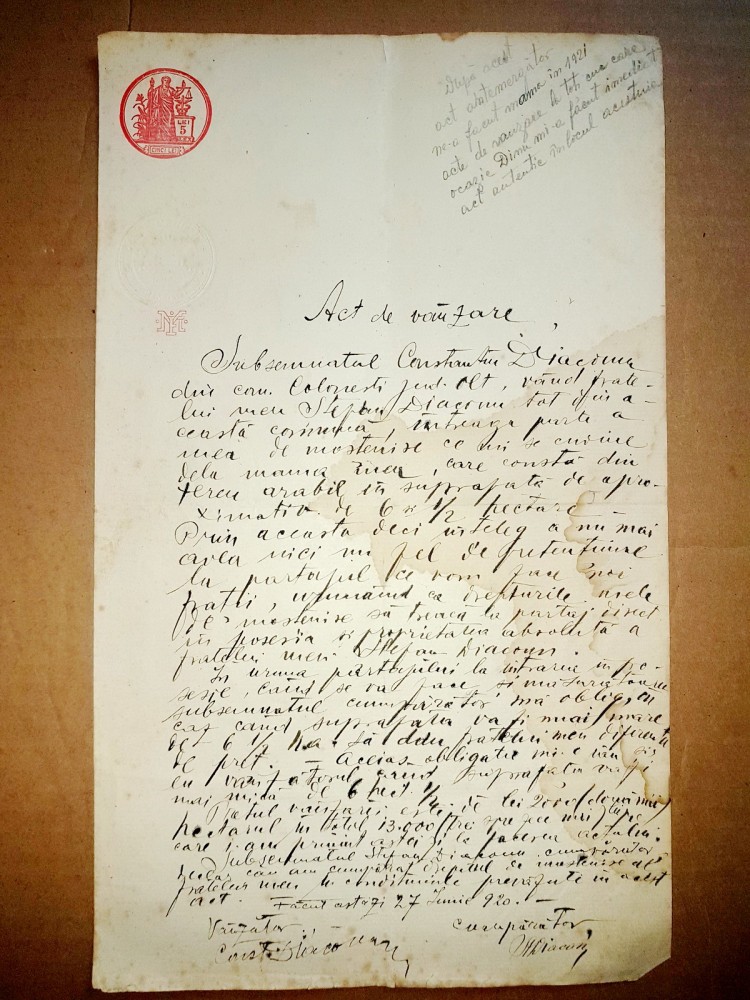 LEI
5
După acest
act antemergător
ne-a făcut mama în 1921
acte de vânzare la toți cu care
ocazie Dinu mi-a făcut imediat
act autentic în locul acestuia
Act de vânzare
Subsemnatul Constantin Diaconu
din com. Colonești jud. Olt, vând frate-
lui meu Ștefan Diaconu tot din a-
ceastă comună, întreaga parte a
mea de moștenire ce mi se cuvine
dela mama mea, care constă din
teren arabil în suprafață de apro-
ximativ de 6 și 1/2 hectare -
Prin aceasta deci înțeleg a nu mai
avea nici un fel de pretențiune
la partajul ce vom face noi
frații, urmând ca drepturile mele
de moștenire să treacă la partaj direct
în posesia și proprietatea absolută a
fratelui meu Ștefan Diaconu.
În urma partajului la intrarea în po-
sesie, când se va face și măsurătoarea
subsemnatul cumpărător mă oblig, în
caz când suprafața va fi mai mare
de 6 1/2 Ha. să dau fratelui meu diferența
de preț. - Aceiași obligație mi-o iau și
eu vânzătorul când suprafața va fi
mai mică de 6 hect. 1/2.
Prețul vânzării este de lei 2000 (două mii)
hectarul în total 13.000 (trei spre zece mii) lei
care i-am primit astăzi la facerea actului.
Subsemnatul Ștefan Diaconu cumpărător
declar că am cumpărat dreptul de moștenire al
fratelui meu în condițiunile prevăzute în acest
act.
Făcut astăzi 27 Iunie 920. -
Vânzător, cumpărător
Const. Diaconu Diaconu